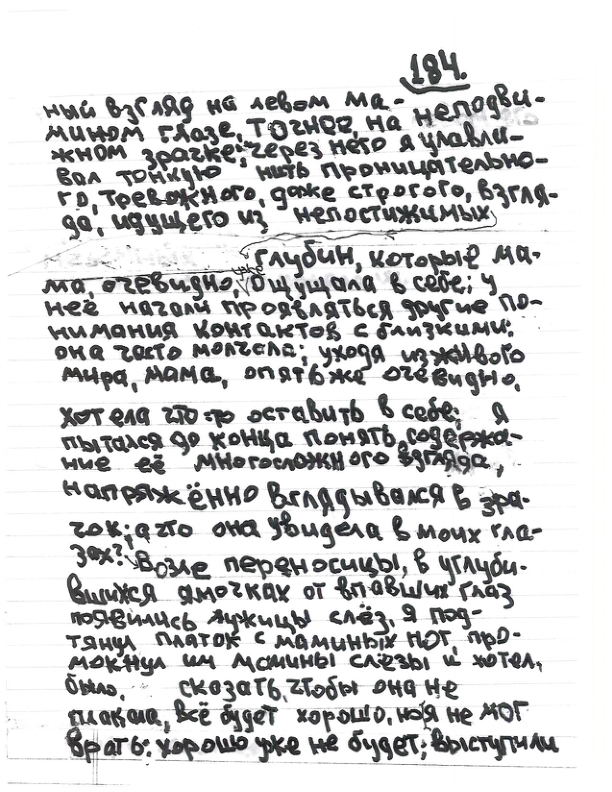 184.
ный взгляд на левом ма-
мином глазе, точнее, на неподви-
жном зрачке; через него я улавли-
вал тонкую нить проницательно-
го, тревожного, даже строгого, взгля-
да, идущего из непостижимых
глубин, которые ма-
уже
ма, очевидно, ощущала в себе; у
неё начали проявляться другие по-
нимания контактов с близкими:
она часто молчала; уходя из живого
мира, мама, опять же очевидно,
хотела что-то оставить в себе; я
пытался до конца понять содержа-
ние её многосложного взгляда,
напряжённо вглядывался в зра-
чок; а что она увидела в моих гла-
зах? Возле переносицы, в углуби-
вшихся ямочках от впавших глаз
появились лужицы слёз, я под-
тянул платок с маминых ног, про-
мокнул им мамины слёзы и хотел,
было, сказать, чтобы она не
плакала, всё будет хорошо, но я не мог
врать: хорошо уже не будет; выступили